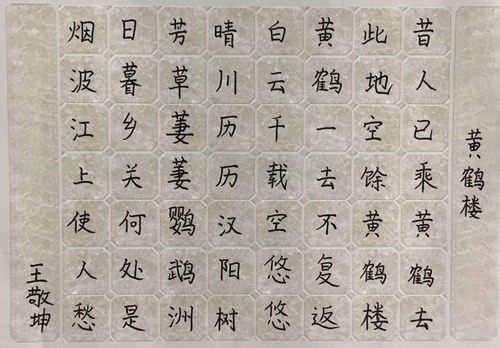 黄鹤楼
昔人已乘黄鹤去
此地空馀黄鹤楼
黄鹤一去不复返
白云千载空悠悠
晴川历历汉阳树
芳草萋萋鹦鹉洲
日暮乡关何处是
烟波江上使人愁
王敬坤